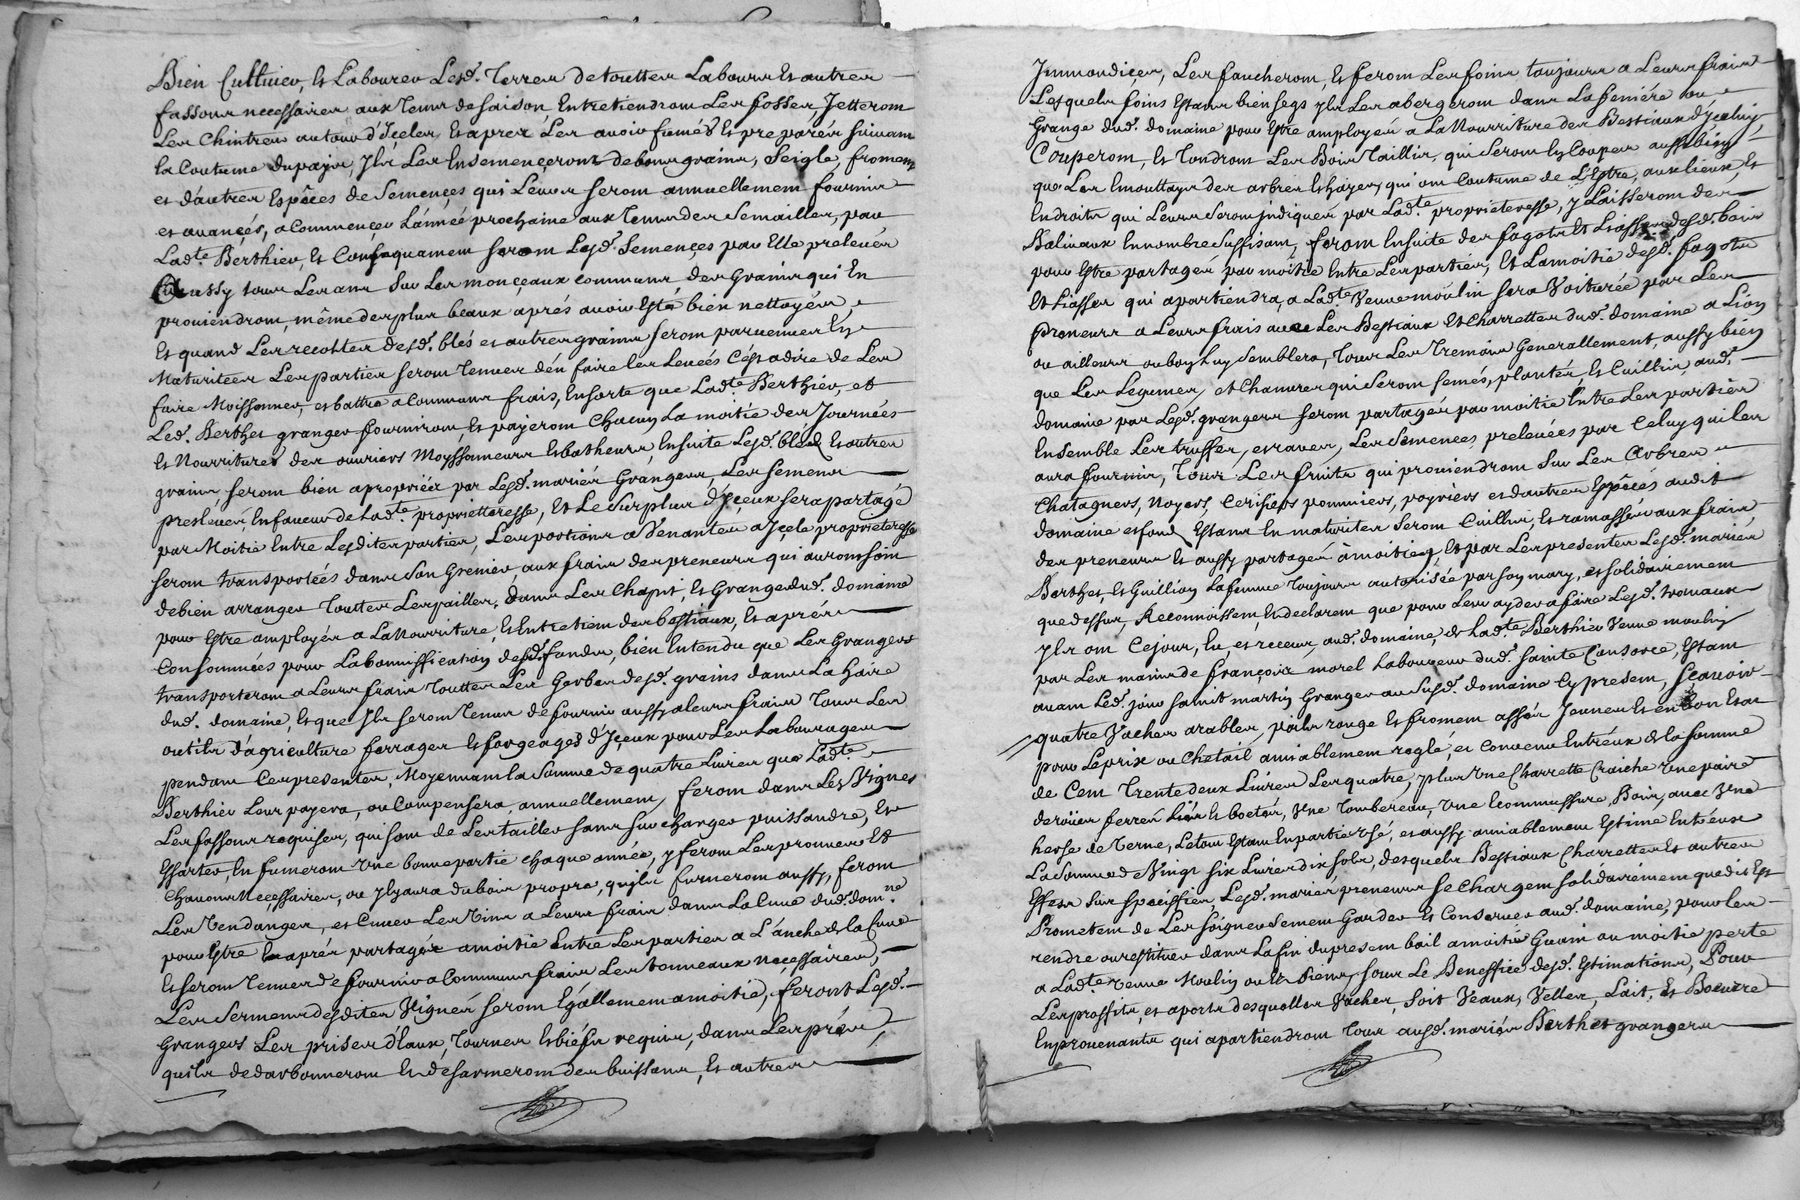 Bien Cultiver, Et Labourer Lesd. Terres de touttes Labours Et autres
fassons necessaires aux Tems de saison Entretiendront Les fosses Jetteront
Les Chintres autour d'Içeles, Et aprez Les avoir fumés Et preparés suivant
la Coutume du pays, Ils Les Ensemençeront de bons grains, Seigle, froment
et d'autres Espêces de Semençes qui Leurs seront annuellement fournis
et avançés, a Commencer L'année prochaine aux Tems des Semailles, par
Lad.te Berthier, Et Consequament seront Lesd. Semençes par Elle prelevées
aussy tous Les ans Sur Les monçeaux communs, des Grains qui En
proviendront, même des plus beaux aprés avoir Esté bien nettoyés,
Et quand Les recoltes desd. blés et autres grains seront parvenues En
Maturitées Les parties seront Tenues d'én faire les Levées C'est a dire de Les
faire Moissonner, et battre a Communs frais, En sorte que Lad.te Berthier, et
Led. Berthet granger fourniront, Et payeront Chacun La moitié des Journées
Et Nourritures des ouvriers Moyssonneurs Et batheurs, En suite Lesd. bléd Et autres
grains, seront bien apropriées par Lesd. mariés Grangers, Les semens
preslevés En faveur de Lad.te proprietteresse, Et Le Surplus d'Içeux sera partagé
par Moitié Entre Lesdites parties, Les portions a Venantes a Içele proprieteresse
seront transportées dans Son Grenier, aux frais des preneurs qui auront soin
de bien arranger Touttes Les pailles, dans Les Chapit, Et Grange dud. domaine
pour Estre amployés a La Nourriture, Et Entretient des bestiaux, Et aprés
Consommées pour La bonniffication desd. fonds, bien Entendu que Les Grangers
transporteront a Leurs frais Touttes Les Gerbes desd. grains dans La haire
dud. domaine, Et que Ils seront Tenus de fournir aussy a Leurs frais Tous Les
outils d'agriculture ferrages Et forgeages d'Içeux pour Les Labourages
pendant Les presentes, Moyennant la Somme de quatre Livres que Lad.te
Berthier Leur payera, ou Compensera, annuellement, feront dans Les Vignes
Les fassons requises, qui sont de Les tailler sans surcharger puissandre, Et
Essarter, En fumeront Une bonne partie chaque année, y feront Les provines Et
Chavons Neçessaires, ou Il y aura du bois propre, qu'ils fumeront aussy, feront
Les Vendanges, et Cuver Les Vins a Leurs frais dans La Cuve dud. dom.ne
pour Estre En aprés partagés amoitié Entre Les parties a L'anche de la Cuve
Et seront Tenues de fournir a Communs frais Les tonneaux neçessaires,
Les Sermens desdites Vignes seront Egallement amoitié, feront Lesd.
Grangers Les prises d'Eaux, Tournes Et biéfs requis, dans Les prés,
qu'ils dedarbonneront Et desarmeront des buissons, Et autres
Immondiçes, Les faucheront, Et feront Les foins toujours a Leurs frais
Lesquels foins Estans bien segs Ils Les abergeront dans La feniére ou
Grange dud. domaine pour Estre amployés a La Nourriture des Bestiaux d'Içeluy
Couperont, Et Tondront Les Bois Taillis, qui seront En Coupes aussy bien
que Les Emouttages des arbres Et hayes, qui ont Coutume de L'Estre, aux lieux, Et
Endroits qui Leurs seront indiqués par Lad.te proprieteresse, y Laisseront des
Balivaux En nombre Suffisant, feront Ensuite des fagots Et Liasses desd. bois
pour Estre partagés par moitié Entre Les parties, Et La moitié desd. fagots
Et Liasses qui apartiendra, a Lad.te Veuve moulin sera Voiturée par Les
preneurs a Leurs frais avec Les Bestiaux Et Charrettes dud. domaine a Lion
ou ailleurs ou bon Luy semblera, Tous Les Tremois Generallement, aussy bien
que Les Legumes, et Chanvres qui seront semés, plantés, Et Cuillis, aud.
domaine par Lesd. grangers seront partagés par moitié Entre Les parties
Ensemble Les truffes, et raves, Les Semences prelevées par Celuy qui les
aura fournis, Tous Les fruits qui proviendront Sur Les Arbres
Chatagners, Noyers, Cerisiers pommiers, poyriers et d'autres Espêces audit
domaine et fond, Estans En maturites seront Cuillis, Et ramassés aux frais
des preneurs Et aussy partagés âmoitie, Et par Les presentes Lesd. mariés
Berthet, Et Guillion La femme Toujours autorisée par son mary, et solidairement
que dessus, Reconnoissent, Et declarent que pour Leur ayder a faire Lesd. travaux
Ils ont Cejour, Eu, et receus, aud. domaine, de Lad.te Berthier Veuve moulin
par Les mains de françois morel Laboureur dud. sainte Consorce, Estant
avant Led. jour saint martin Granger au Susd. domaine Cy present, sçavoir
quatre Vaches arables, poils rouge Et froment assés Jeunes Et en bon Etat
pour Le prix ou Chetail amiablement reglé, et Convenu Entréux de la somme
de Cent Trente deux Livres Les quatre, plus Une Charrette Craiche Une paire
de roües ferrés Liés Et boctés, Une Tombereau, Une Ecommassure, Bois, avec Une
herse de Terne, Letout Estant En partie Usé, et aussy amiablement Estimé Entr'eux
La Somme de Vingt six Livres dix sols, desquels Bestiaux Charrettes Et autres
Effets Sus specifiés, Lesd. mariés preneurs se Chargent solidairement que dit Est
Promettent de Les soigneusement Garder Et Conserver aud. domaine, pour les
rendre ou restituer dans La fin du present bail amoitié Guain ou moitié perte
a Lad.te veuve Moulin ou Et Siens, sous Le Beneffice desd. Estimations, Pour
Les proffits, et aports desquelles Vaches, soit Veaux, Velles, Lait, Et Boeurre
En provenants qui apartiendront Tous ausd. mariés Berthet grangers